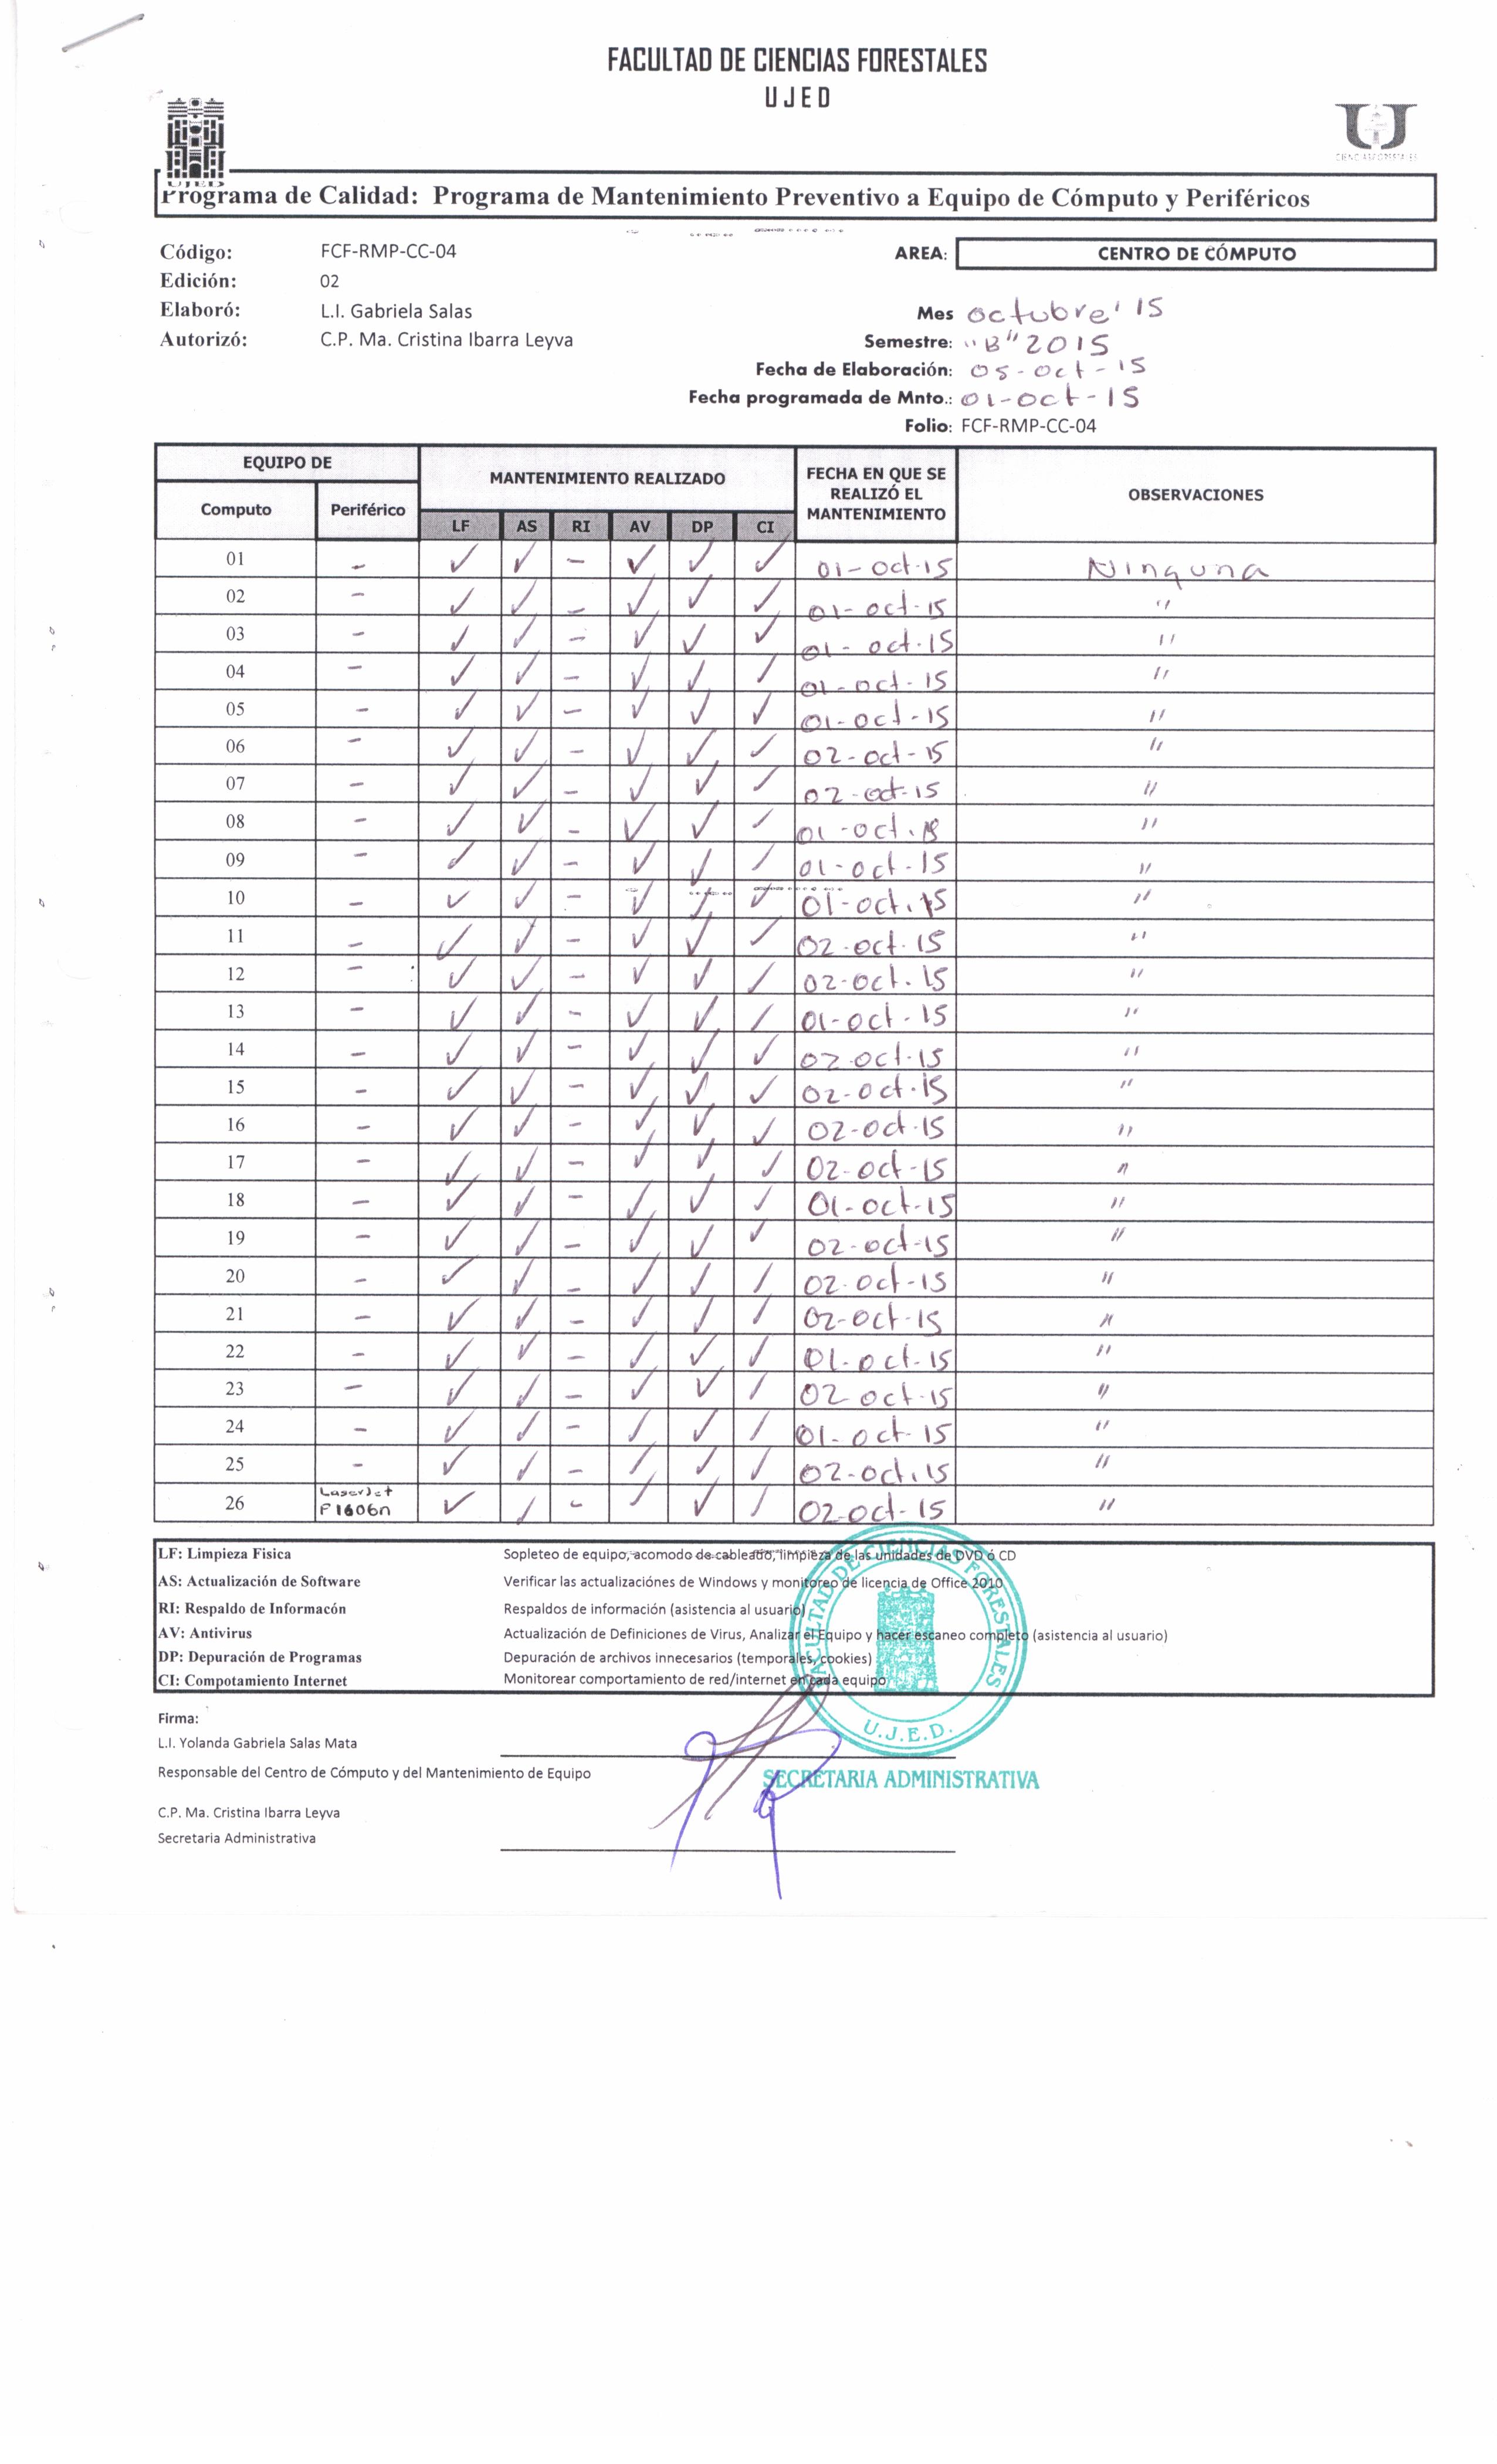 FACULTAD DE CIENCIAS FORESTALES
UJED
UJED
CIENCIAS FORESTALES
Programa de Calidad: Programa de Mantenimiento Preventivo a Equipo de Cómputo y Periféricos
Código: FCF-RMP-CC-04
AREA: CENTRO DE CÓMPUTO
Edición: 02
Elaboró: L.I. Gabriela Salas
Mes octubre' 15
Autorizó: C.P. Ma. Cristina Ibarra Leyva
Semestre: "B" 2015
Fecha de Elaboración: 05-oct-15
Fecha programada de Mnto.: 01-oct-15
Folio: FCF-RMP-CC-04
EQUIPO DE MANTENIMIENTO REALIZADO FECHA EN QUE SE REALIZÓ EL MANTENIMIENTO OBSERVACIONES
Computo Periférico LF AS RI AV DP CI
01 - ✓ ✓ - ✓ ✓ ✓ 01-oct-15 Ninguna
02 - ✓ ✓ - ✓ ✓ ✓ 01-oct-15 "
03 - ✓ ✓ - ✓ ✓ ✓ 01-oct-15 "
04 - ✓ ✓ - ✓ ✓ ✓ 01-oct-15 "
05 - ✓ ✓ - ✓ ✓ ✓ 01-oct-15 "
06 - ✓ ✓ - ✓ ✓ ✓ 02-oct-15 "
07 - ✓ ✓ - ✓ ✓ ✓ 02-oct-15 "
08 - ✓ ✓ - ✓ ✓ ✓ 01-oct-15 "
09 - ✓ ✓ - ✓ ✓ ✓ 01-oct-15 "
10 - ✓ ✓ - ✓ ✓ ✓ 01-oct-15 "
11 - ✓ ✓ - ✓ ✓ ✓ 02-oct-15 "
12 - ✓ ✓ - ✓ ✓ ✓ 02-oct-15 "
13 - ✓ ✓ - ✓ ✓ ✓ 01-oct-15 "
14 - ✓ ✓ - ✓ ✓ ✓ 02-oct-15 "
15 - ✓ ✓ - ✓ ✓ ✓ 02-oct-15 "
16 - ✓ ✓ - ✓ ✓ ✓ 02-oct-15 "
17 - ✓ ✓ - ✓ ✓ ✓ 02-oct-15 "
18 - ✓ ✓ - ✓ ✓ ✓ 01-oct-15 "
19 - ✓ ✓ - ✓ ✓ ✓ 02-oct-15 "
20 - ✓ ✓ - ✓ ✓ ✓ 02-oct-15 "
21 - ✓ ✓ - ✓ ✓ ✓ 02-oct-15 "
22 - ✓ ✓ - ✓ ✓ ✓ 01-oct-15 "
23 - ✓ ✓ - ✓ ✓ ✓ 02 oct-15 "
24 - ✓ ✓ - ✓ ✓ ✓ 01-oct-15 "
25 - ✓ ✓ - ✓ ✓ ✓ 02-oct.15 "
26 LaserJet P1606n ✓ ✓ - ✓ ✓ ✓ 02-oct-15 "
LF: Limpieza Fisica Sopleteo de equipo, acomodo de cableado, limpieza de las unidades de DVD ó CD
AS: Actualización de Software Verificar las actualizaciónes de Windows y monitoreo de licencia de Office 2010
RI: Respaldo de Informacón Respaldos de información (asistencia al usuario)
AV: Antivirus Actualización de Definiciones de Virus, Analizar el Equipo y hacer escaneo completo (asistencia al usuario)
DP: Depuración de Programas Depuración de archivos innecesarios (temporales, cookies)
CI: Compotamiento Internet Monitorear comportamiento de red/internet en cada equipo
FACULTAD DE CIENCIAS FORESTALES
U.J.E.D.
SECRETARIA ADMINISTRATIVA
Firma:
L.I. Yolanda Gabriela Salas Mata
Responsable del Centro de Cómputo y del Mantenimiento de Equipo
C.P. Ma. Cristina Ibarra Leyva
Secretaria Administrativa